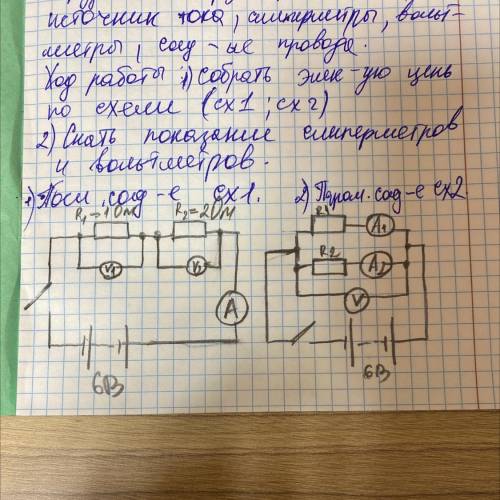 источник тока, амперметры, вольт-
метры, соед-ые провода.
Ход работы 1) Собрать элек-ую цепь
по схеме (сх1; сх2)
2) Снять показание амперметров
и вольтметров.
1) Посл. соед-е сх1. 2) Парал. соед-е сх2
R₁=1 Ом R₂=2 Ом R1 A₁
V₁ V₂ R2 A₂
A V
6В 6В